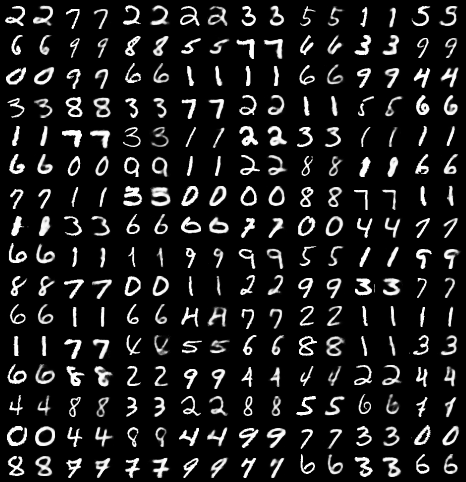 2 2 7 7 2 2 2 2 3 3 5 5 1 1 5 5
6 6 9 9 8 8 5 5 7 7 6 6 3 3 9 9
0 0 9 9 6 6 1 1 1 1 6 6 9 9 4 4
3 3 8 8 3 3 7 7 2 2 1 1 5 5 6 6
1 1 7 7 3 3 1 1 2 2 3 3 1 1 1 1
6 6 0 0 9 9 1 1 2 2 8 8 1 1 6 6
7 7 1 1 3 3 0 0 0 0 8 8 7 7 1 1
1 1 3 3 6 6 6 6 7 7 0 0 4 4 7 7
6 6 1 1 1 1 9 9 9 9 5 5 1 1 9 9
8 8 7 7 0 0 1 1 2 2 9 9 3 3 7 7
6 6 1 1 6 6 7 7 2 2 1 1 1 1
1 1 7 7 5 5 6 6 8 8 1 1 3 3
6 6 8 8 2 2 9 9 4 4 4 4 2 2 4 4
4 4 8 8 3 3 2 2 8 8 5 5 6 6 7 7
0 0 4 4 8 8 4 4 9 9 7 7 3 3 0 0
8 8 7 7 7 7 9 9 7 7 6 6 3 3 6 6